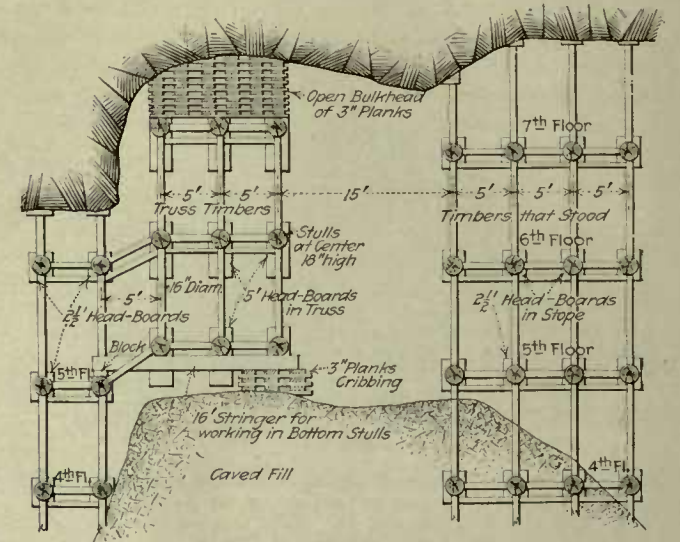 Open Bulkhead
of 3" Planks
7th Floor
5' 5' 15' 5' 5' 5'
Truss Timbers
Timbers that Stood
Stulls
at Center
18" high
6th Floor
5'
16" Diam.
5' Head-Boards
in Truss
2½' Head-Boards
2½' Head-Boards
in Stope
Block
5th Floor
5th Fl.
3" Planks
Cribbing
16' Stringer for
working in Bottom Stulls
Caved Fill
4th Fl.
4th Fl.